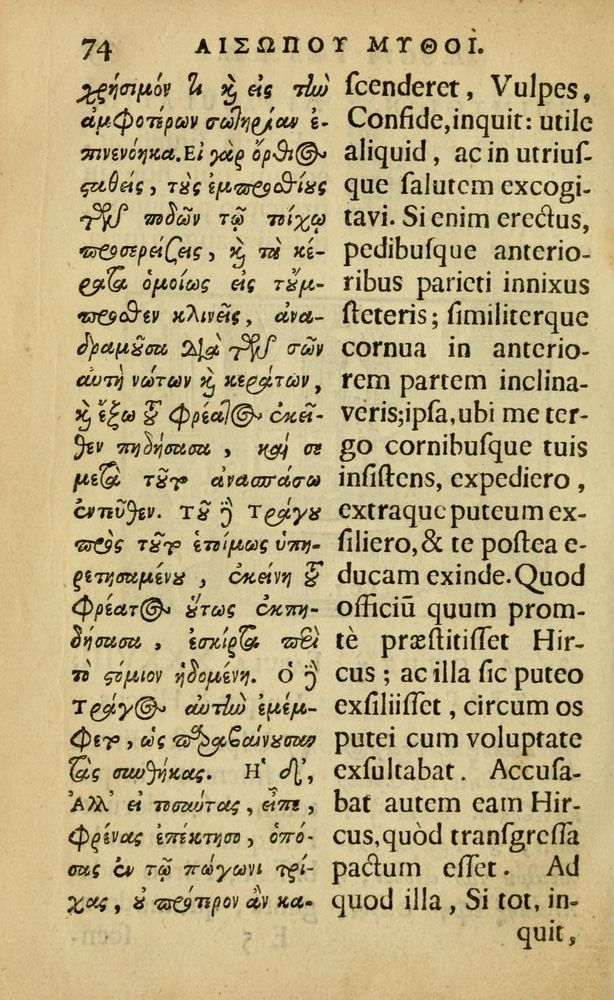 74 ΑΙΣΩΠΟΥ ΜΥΘΟΙ.
χρήσιμόν τι καὶ εἰς τὴν
ἀμφοτέρων σωτηρίαν ἐ-
πινενόηκα. Εἰ γὰρ ὄρθιος
σταθεὶς, τοὺς ἐμπροσθίους
τῶν ποδῶν τῷ τοίχῳ
προσερείσεις, καὶ τὰ κέ-
ρατα ὁμοίως εἰς τοὔμ-
προσθεν κλινεῖς, ἀνα-
δραμοῦσα διὰ τῶν σῶν
αὐτὴ νώτων καὶ κεράτων,
καὶ ἔξω τοῦ φρέατος ἐκεῖ-
θεν πηδήσασα, καὶ σε
μετὰ τοῦτο ἀνασπάσω
ἐντεῦθεν. Τοῦ δὲ Τράγου
πρὸς τοῦτο ἑτοίμως ὑπη-
ρετησαμένου, ἐκείνη τοῦ
φρέατος οὕτως ἐκπη-
δήσασα, ἐσκίρτα περὶ
τὸ στόμιον ἡδομένη. ὁ δὲ
Τράγος αὐτὴν ἐμέμ-
φετο, ὡς παραβαίνουσαν
τὰς συνθήκας. Ἡ δὲ,
Ἀλλ' εἰ τοσαύτας, εἶπε,
φρένας ἐπέκτησο, ὁπό-
σας ἐν τῷ πώγωνι τρί-
χας, οὐ πρότερον ἂν κα-
ſcenderet, Vulpes,
Confide, inquit: utile
aliquid, ac in utriuſ-
que ſalutem excogi-
tavi. Si enim erectus,
pedibuſque anterio-
ribus parieti innixus
ſteteris; ſimiliterque
cornua in anterio-
rem partem inclina-
veris; ipſa, ubi me ter-
go cornibuſque tuis
inſiſtens, expediero,
extraque puteum ex-
ſiliero, & te poſtea e-
ducam exinde. Quod
officiū quum prom-
tè præſtitiſſet Hir-
cus; ac illa ſic puteo
exſiliiſſet, circum os
putei cum voluptate
exſultabat. Accuſa-
bat autem eam Hir-
cus, quòd tranſgreſſa
pactum eſſet. Ad
quod illa, Si tot, in-
quit,